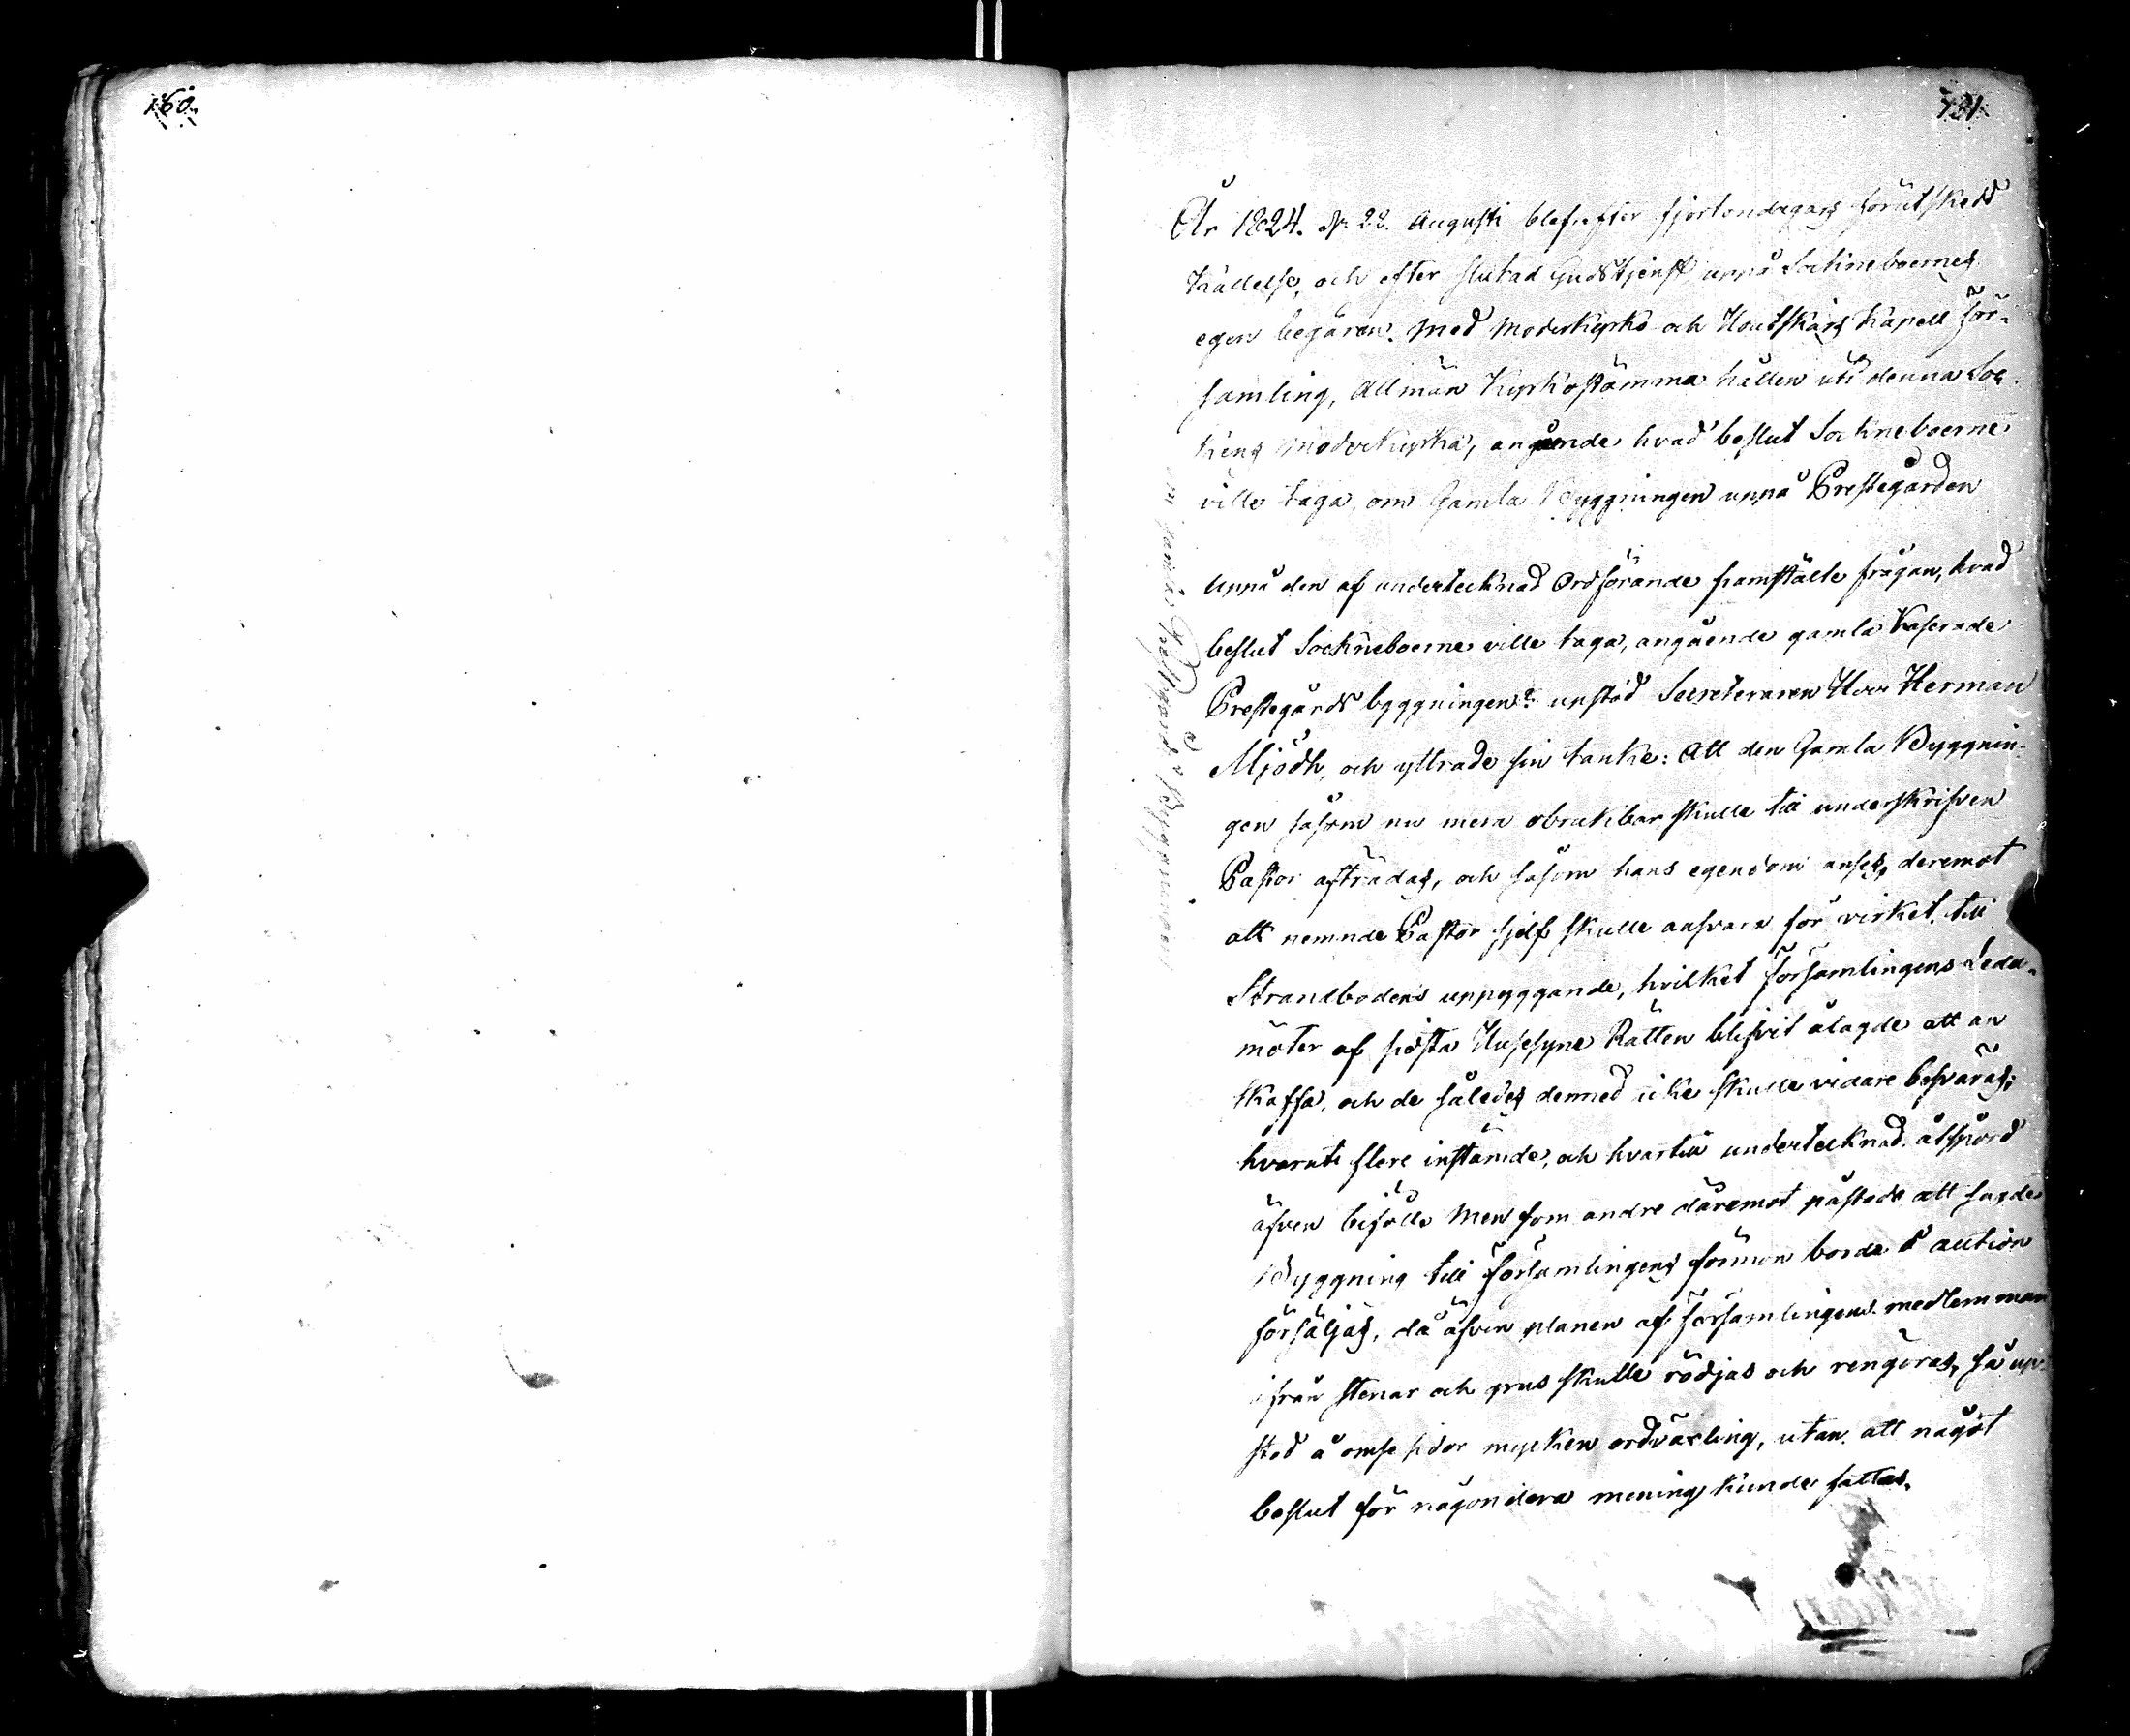 160.
131
År 1824. d. 22. Augusti blef efter fjortondagars förutskedd
kallelse, och efter slutad Gudstjenst, uppå Sockneboernes
egen begäran, med Moderkyrko- och Houtskärs Kapell för-
samling, Allmän Kyrkostämma hållen uti denna Soc-
kens Moderkyrka, angående hvad beslut Sockneboerne
ville taga, om Gamla Byggningen uppå Prestegården
Uppå den af undertecknad Ordförande framstälte frågan, hvad
beslut Sockneboerne ville taga, angående gamla Kaserade
Prestegårds byggningen? upstod Secreteraren Herr Herman
Mjödh, och yttrade sin tanke: Att den Gamla Byggnin-
gen såsom nu mera obrukbar skulle till underskrifven
Pastor afträdas, och såsom hans egendom anses, deremot
att nemnde Pastor sjelf skulle ansvara för virket till
Strandbodens uppyggande, hvilket Församlingens Leda-
möter af sidsta Husesyne Rätten blifvit ålagde att an
skaffa, och de således dermed icke skulle vidare besväras;
hvaruti flere instämde, och hvartill undertecknad åtspord
äfven biföll. Men som andre däremot påstodo att sagde
Byggning till Församlingens förmon borde å auction
försäljas, då äfven planen af Församlingens medlemmar
ifrån stenar och grus skulle rödjas och rengöras, så up-
stod å ömse sidor mycken ordväxling, utan att något
beslut för någondera mening kunde fattas.
Prestgårds Byggningen